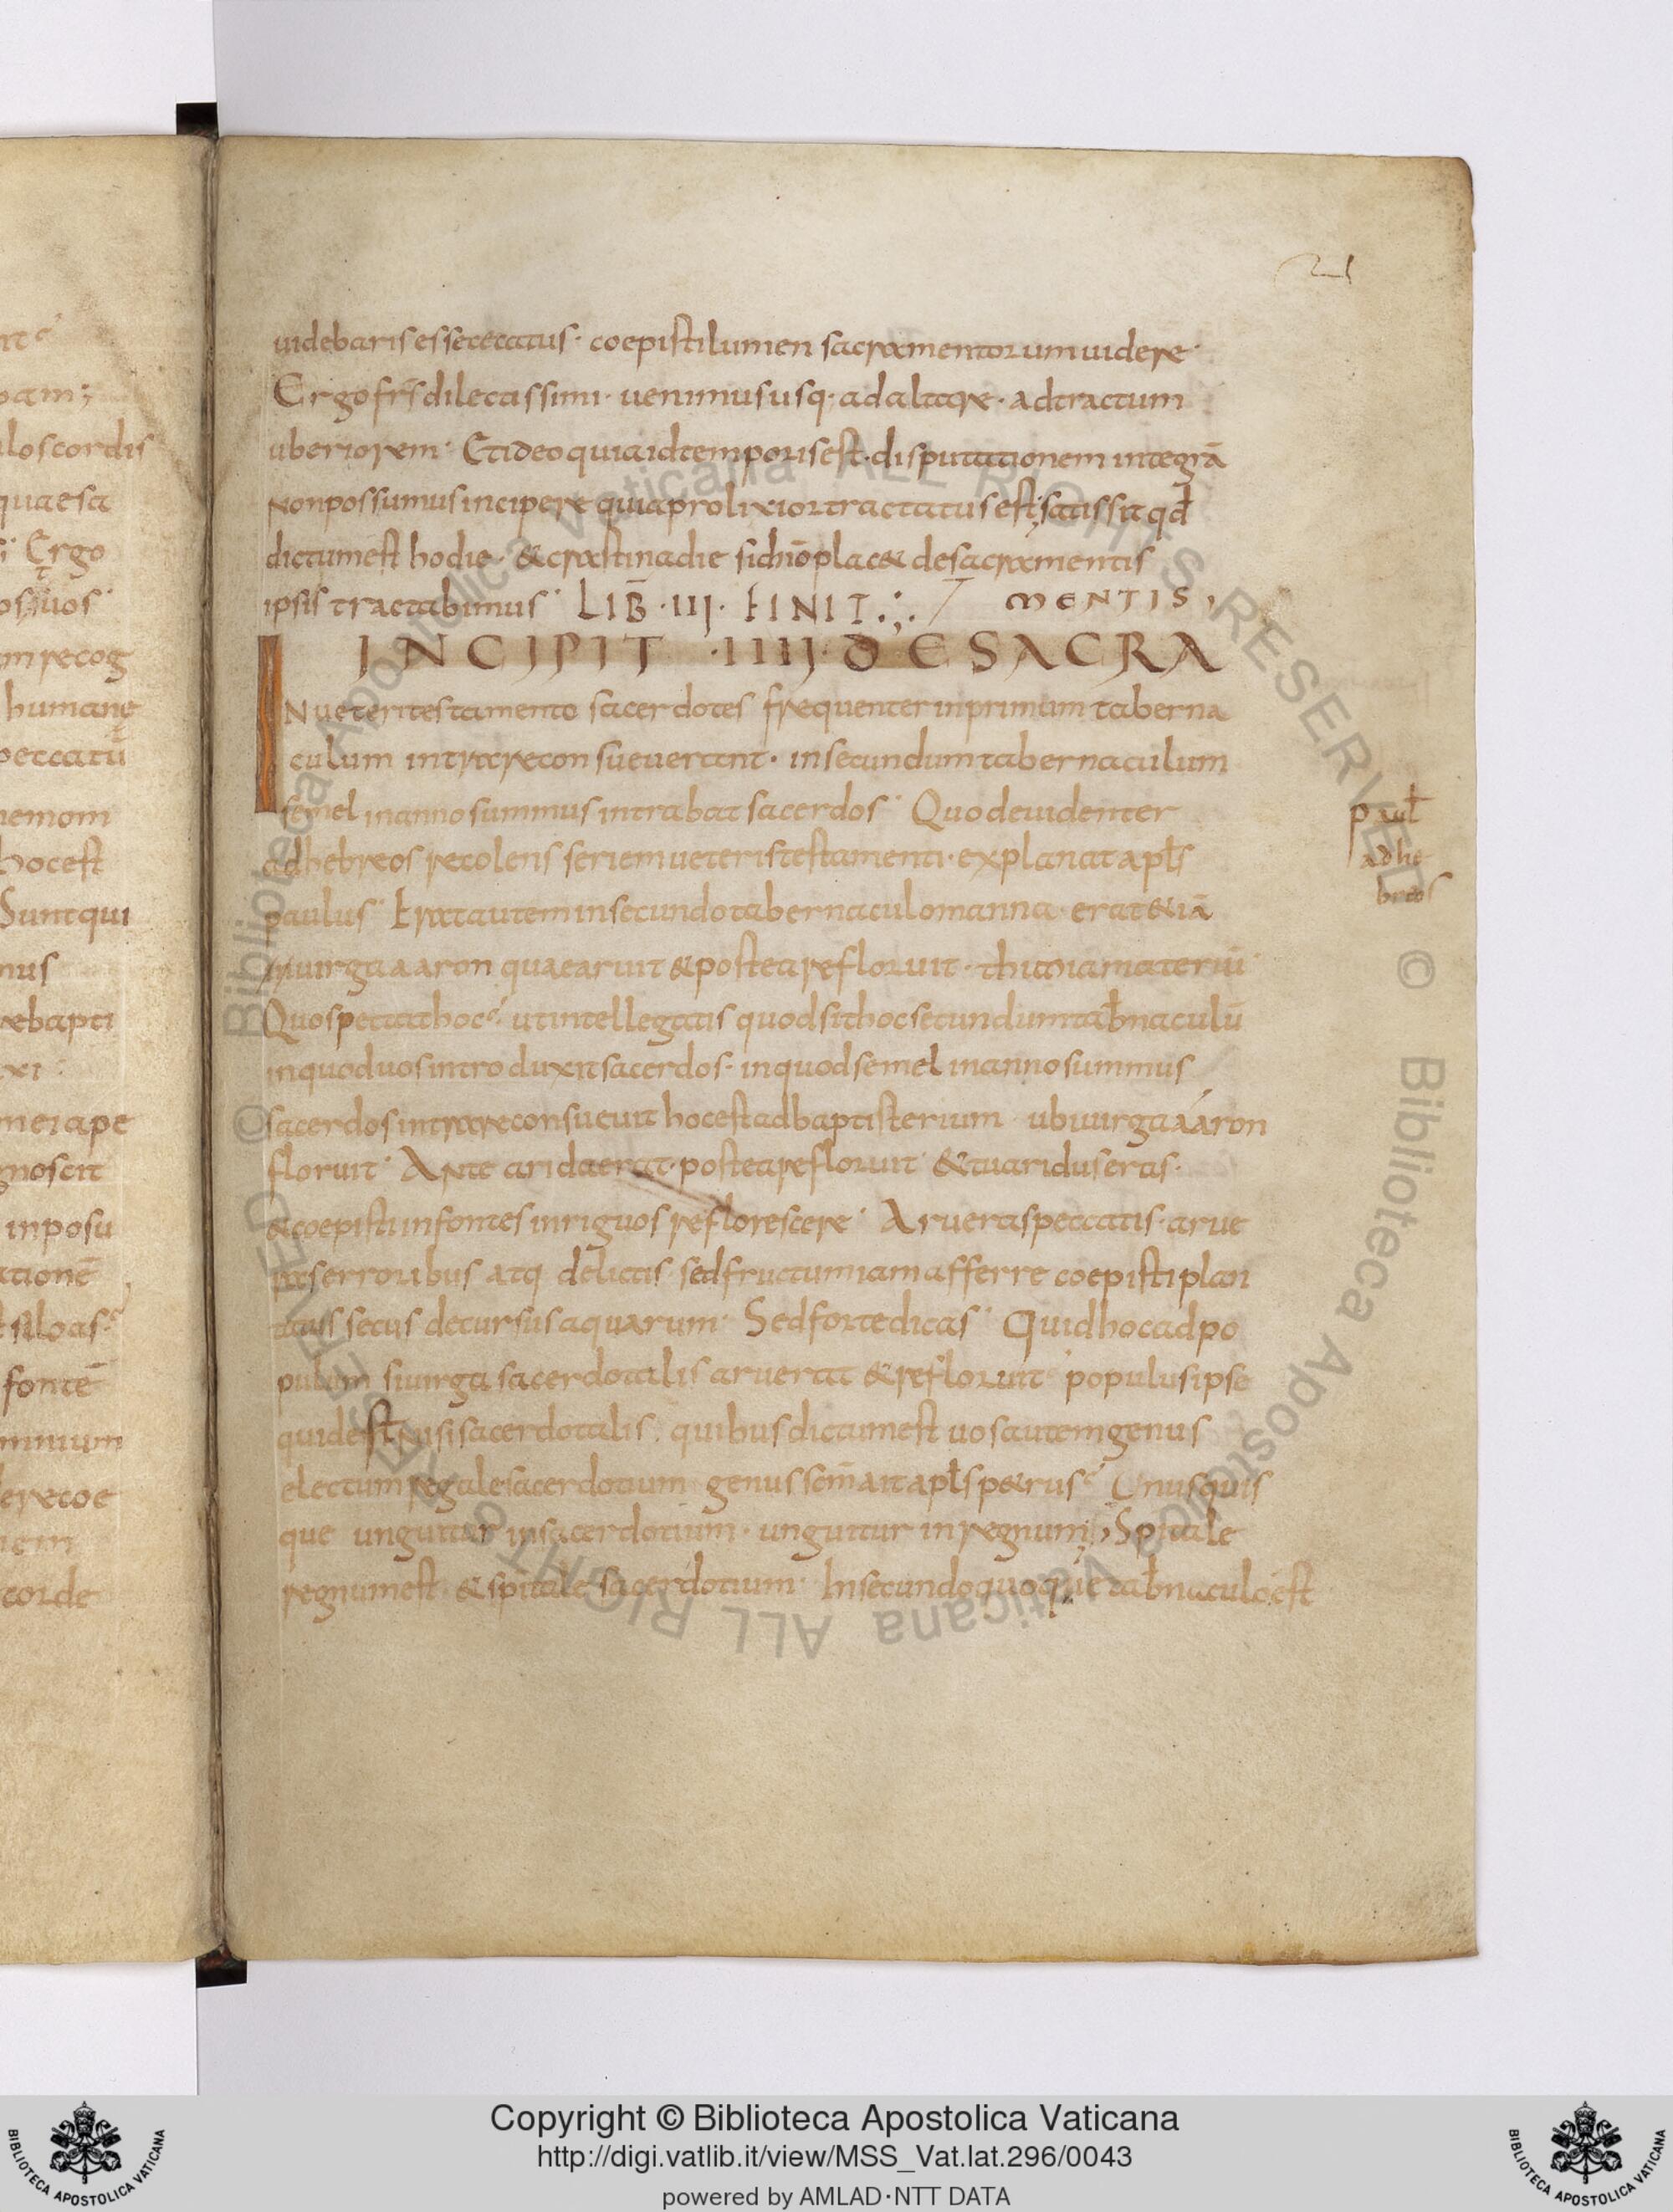 21
uidebaris esse cecatus· coepisti lumen sacramentorum uidere·
Ergo fr̄s dilectissimi· uenimus usq· ad altare· ad tractum
uberiorem· Et ideo quia id temporis est· disputationem integrā
Non possumus incipere quia prolixior tractatus est; satis sit qđ
dictum est hodie· & crastina die si dn̄o plac& de sacramentis
ipsis tractabimus· LIB̄·III· FINIT·:·
MENTIS,
INCIPIT ·IIII· DE SACRA
IN ueteri testamento sacerdotes frequenter in primum taberna
culum intrare consueuerant· in secundum tabernaculum
semel in anno summus intrabat sacerdos· Quod euidenter
ad hebreos recolens seriem ueteris testamenti· explanat apłs
paulus· Erat autem in secundo tabernaculo manna· erat &iā
uirga aaron quae aruit & postea refloruit· thimiamateriū·
Quo spectat hoc· ut intellegatis quod sit hoc secundum tabnaculū
in quo duos introduxit sacerdos· in quod semel in anno summus
sacerdos intrare consueuit hoc est ad baptisterium ubi uirga aaron
floruit· Ante arida erat· postea refloruit· & tu aridus eras·
& coepisti in fontes inriguos reflorescere· Arueras peccatis· arue
ras erroribus atq delictis· sed fructum iam afferre coepisti plan
tatus secus decursus aquarum· Sed forte dicas· Quid hoc ad po
pulum si uirga sacerdotalis aruerat & refloruit· populus ipse
quid est nisi sacerdotalis· quibus dictum est uos autem genus
electum regale sacerdotium genus scm̄ ait apłs p&rus· Unusquis
que unguitur in sacerdotium· unguitur in regnum; Spitale
regnum est & spitale sacerdotium· In secundo quoque tabnaculo est
pauł
ad he
breos
rt
oam;
ulos cordis
quae sa
Ergo
os suos
m recog
humane
peccatū
nemom
hoc est
Sunt qui
mus
rebapti
xi·
mei ape
gnoscit
inposu
ationē
siloas·
fontē
omnium
corde
Copyright © Biblioteca Apostolica Vaticana
http://digi.vatlib.it/view/MSS_Vat.lat.296/0043
powered by AMLAD·NTT DATA
BIBLIOTECA APOSTOLICA VATICANA
BIBLIOTECA APOSTOLICA VATICANA
© Biblioteca Apostolica Vaticana ALL RIGHTS RESERVED
© Biblioteca Apostolica Vaticana ALL RIGHTS RESERVED